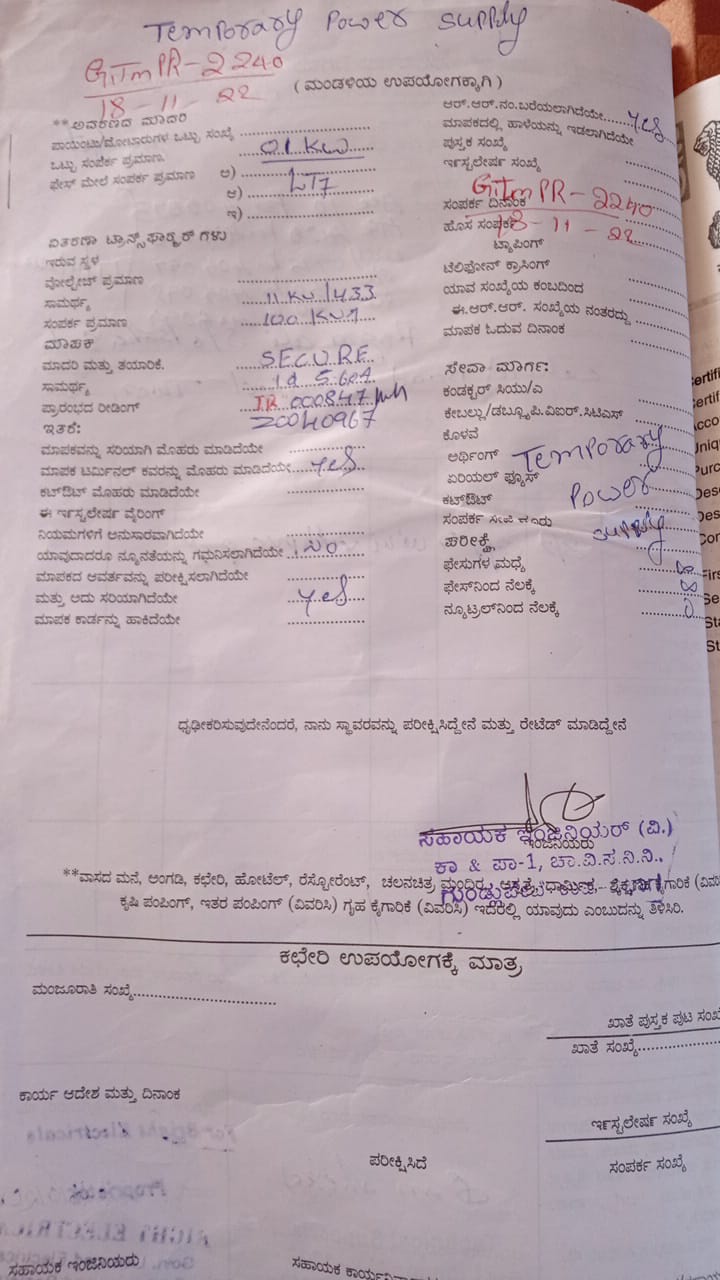 Temporary Power Supply
GTMPR-2240
18-11-22
(ಮಂಡಳಿಯ ಉಪಯೋಗಕ್ಕಾಗಿ)
**ಆವರಣದ ಮಾದರಿ
ಪಾಯಿಂಟು/ಮೋಟಾರುಗಳ ಒಟ್ಟು ಸಂಖ್ಯೆ
ಒಟ್ಟು ಸಂಪರ್ಕ ಪ್ರಮಾಣ. 01 KW
ಫೇಸ್ ಮೇಲೆ ಸಂಪರ್ಕ ಪ್ರಮಾಣ ಅ) LT7
ಆ)
ಇ)
ವಿತರಣಾ ಟ್ರಾನ್ಸ್‌ಫಾರ್ಮರ್ ಗಳು
ಇರುವ ಸ್ಥಳ
ವೋಲ್ಟೇಜ್ ಪ್ರಮಾಣ
ಸಾಮರ್ಥ್ಯ 11 KV/433
ಸಂಪರ್ಕ ಪ್ರಮಾಣ 100 KVA
ಮಾಪಕ
ಮಾದರಿ ಮತ್ತು ತಯಾರಿಕೆ. SECURE
ಸಾಮರ್ಥ್ಯ
ಪ್ರಾರಂಭದ ರೀಡಿಂಗ್ IR 000847
ಇತರೆ: 20040967
ಮಾಪಕವನ್ನು ಸರಿಯಾಗಿ ಮೊಹರು ಮಾಡಿದೆಯೇ
ಮಾಪಕ ಟರ್ಮಿನಲ್ ಕವರನ್ನು ಮೊಹರು ಮಾಡಿದೆಯೇ yes
ಕಟ್‌ಔಟ್ ಮೊಹರು ಮಾಡಿದೆಯೇ
ಈ ಇನ್ಸ್ಟಲೇಷನ್ ವೈರಿಂಗ್
ನಿಯಮಗಳಿಗೆ ಅನುಸಾರವಾಗಿದೆಯೇ
ಯಾವುದಾದರೂ ನ್ಯೂನತೆಯನ್ನು ಗಮನಿಸಲಾಗಿದೆಯೇ No
ಮಾಪಕದ ಆವರ್ತವನ್ನು ಪರೀಕ್ಷಿಸಲಾಗಿದೆಯೇ
ಮತ್ತು ಅದು ಸರಿಯಾಗಿದೆಯೇ yes
ಮಾಪಕ ಕಾರ್ಡನ್ನು ಹಾಕಿದೆಯೇ
ಆರ್.ಆರ್.ನಂ.ಬರೆಯಲಾಗಿದೆಯೇ yes
ಮಾಪಕದಲ್ಲಿ ಹಾಳೆಯನ್ನು ಇಡಲಾಗಿದೆಯೇ
ಪುಸ್ತಕ ಸಂಖ್ಯೆ
ಇನ್ಸ್ಟಲೇಷನ್ ಸಂಖ್ಯೆ
GTMPR-2240
ಸಂಪರ್ಕ ದಿನಾಂಕ
ಹೊಸ ಸಂಪರ್ಕ 18-11-22
ಟ್ಯಾಪಿಂಗ್
ಟೆಲಿಫೋನ್ ಕ್ರಾಸಿಂಗ್
ಯಾವ ಸಂಖ್ಯೆಯ ಕಂಬದಿಂದ
ಈ.ಆರ್.ಆರ್. ಸಂಖ್ಯೆಯ ನಂತರದ್ದು
ಮಾಪಕ ಓದುವ ದಿನಾಂಕ
ಸೇವಾ ಮಾರ್ಗ:
ಕಂಡಕ್ಟರ್ ಸಿಯು/ಎ
ಕೇಬಲ್ಲು/ಡಬ್ಲ್ಯೂಪಿ.ವಿಐರ್.ಸಿಟಿಎಸ್
ಕೊಳವೆ
ಅರ್ಥಿಂಗ್ Temporary
ಏರಿಯಲ್ ಫ್ಯೂಸ್
ಕಟ್‌ಔಟ್ Power
ಸಂಪರ್ಕ
ಪರೀಕ್ಷೆ supply
ಫೇಸುಗಳ ಮಧ್ಯೆ ∞
ಫೇಸ್‌ನಿಂದ ನೆಲಕ್ಕೆ ∞
ನ್ಯೂಟ್ರಲ್‌ನಿಂದ ನೆಲಕ್ಕೆ
ಧೃಢೀಕರಿಸುವುದೇನೆಂದರೆ, ನಾನು ಸ್ಥಾವರವನ್ನು ಪರೀಕ್ಷಿಸಿದ್ದೇನೆ ಮತ್ತು ರೇಟೆಡ್ ಮಾಡಿದ್ದೇನೆ
ಸಹಾಯಕ ಇಂಜಿನಿಯರ್ (ವಿ.)
ಇಂಜಿನಿಯರು
ಕಾ & ಪಾ-1, ಚಾ.ವಿ.ಸ.ನಿ.ನಿ.,
**ವಾಸದ ಮನೆ, ಅಂಗಡಿ, ಕಛೇರಿ, ಹೋಟೆಲ್, ರೆಸ್ಟೋರೆಂಟ್, ಚಲನಚಿತ್ರ ಮಂದಿರ, ಆಸ್ಪತ್ರೆ, ಧಾರ್ಮಿಕ,
ಕೃಷಿ ಪಂಪಿಂಗ್, ಇತರ ಪಂಪಿಂಗ್ (ವಿವರಿಸಿ) ಗೃಹ ಕೈಗಾರಿಕೆ (ವಿವರಿಸಿ) ಇದರಲ್ಲಿ ಯಾವುದು ಎಂಬುದನ್ನು ತಿಳಿಸಿರಿ.
ಕಛೇರಿ ಉಪಯೋಗಕ್ಕೆ ಮಾತ್ರ
ಮಂಜೂರಾತಿ ಸಂಖ್ಯೆ
ಖಾತೆ ಪುಸ್ತಕ ಪುಟ
ಖಾತೆ ಸಂಖ್ಯೆ
ಕಾರ್ಯ ಆದೇಶ ಮತ್ತು ದಿನಾಂಕ
ಇನ್ಸ್ಟಲೇಷನ್ ಸಂಖ್ಯೆ
ಪರೀಕ್ಷಿಸಿದೆ
ಸಂಪರ್ಕ ಸಂಖ್ಯೆ
ಸಹಾಯಕ ಇಂಜಿನಿಯರು